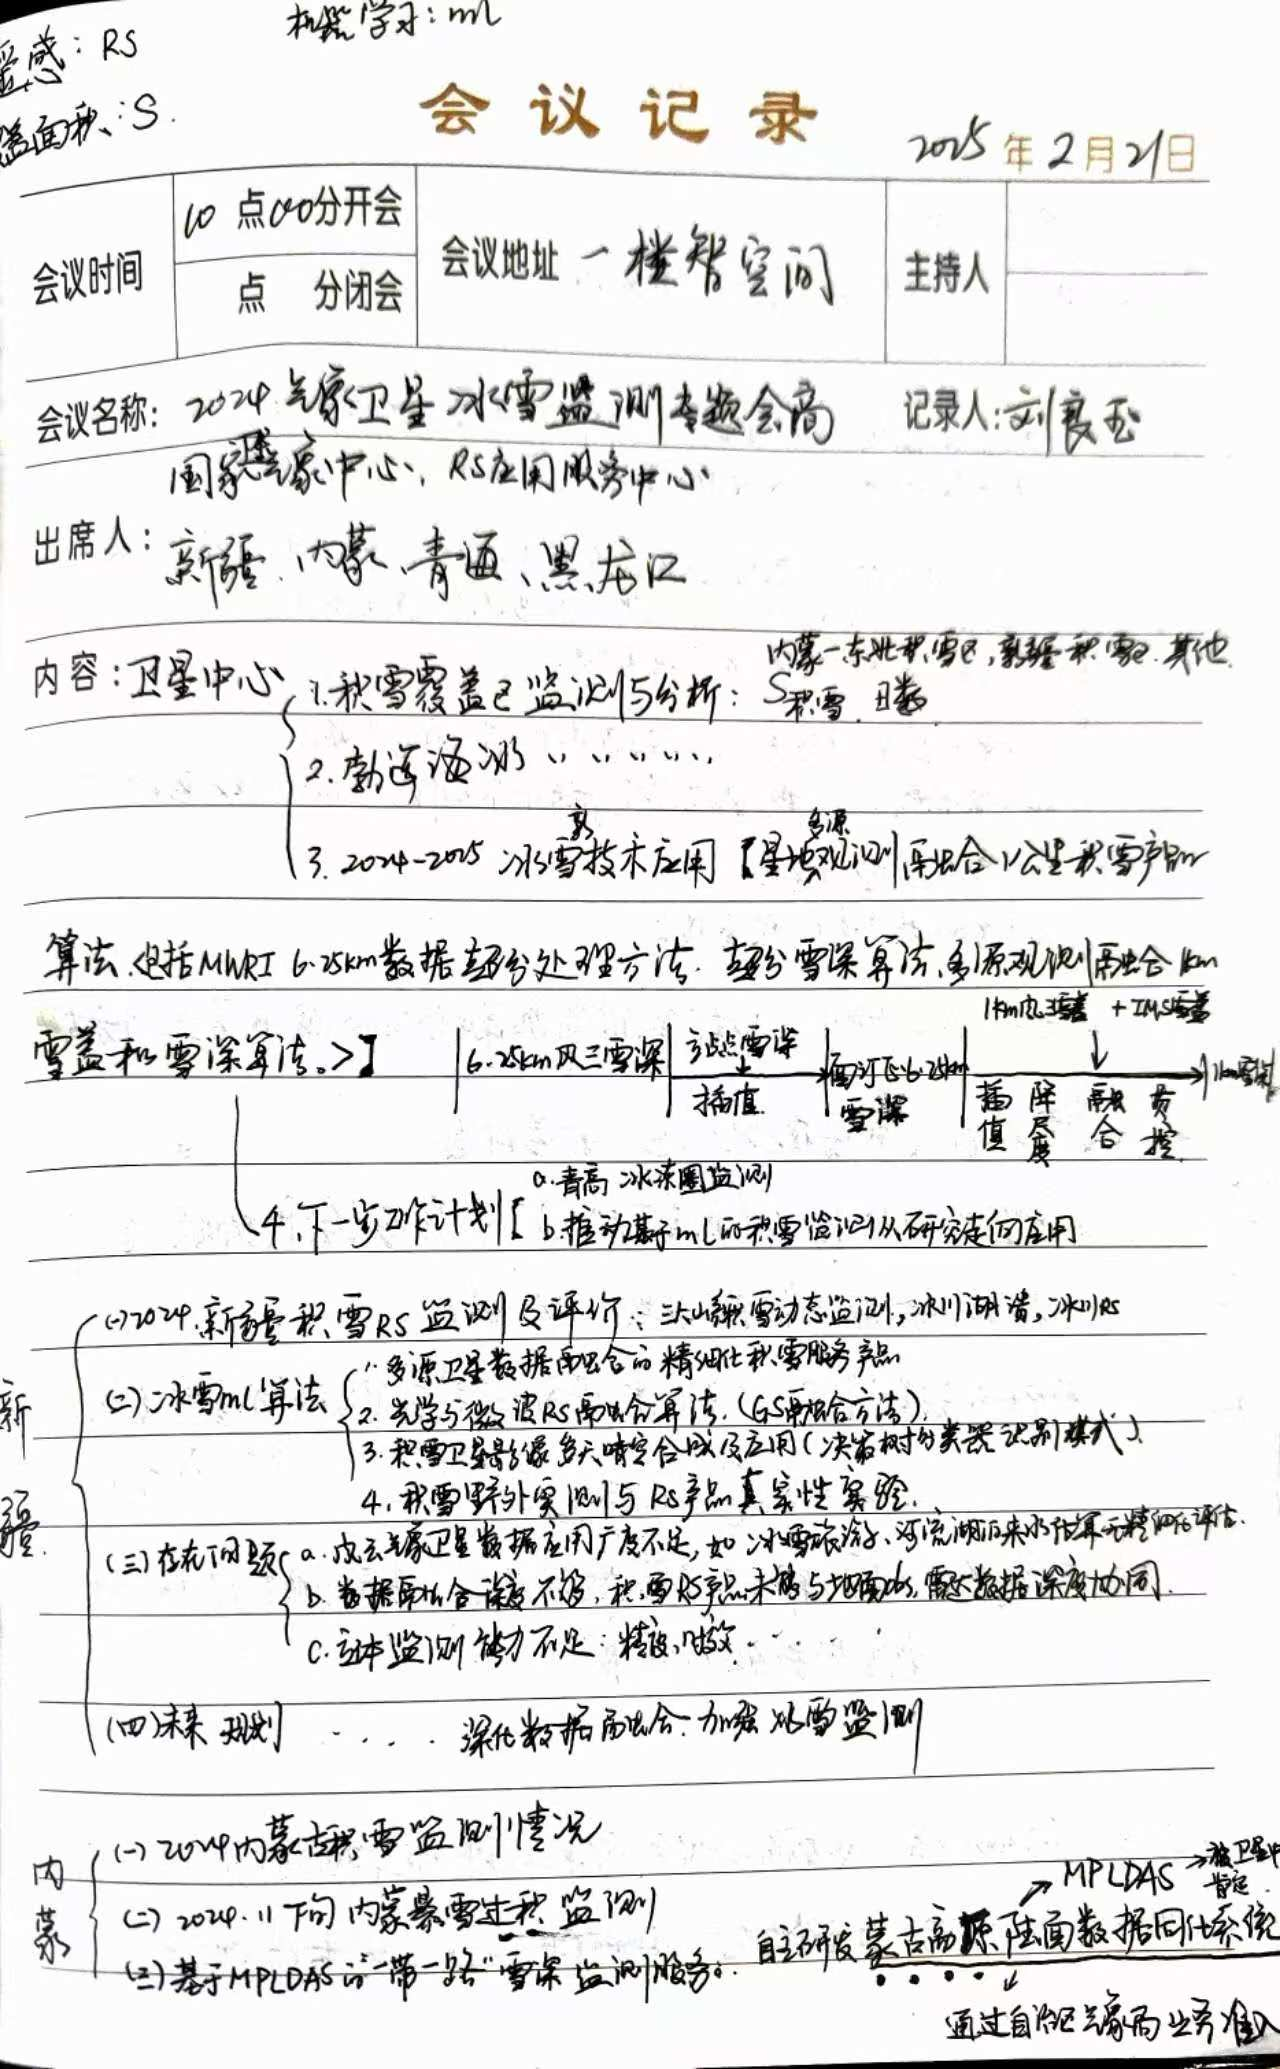 机器学习：ml
遥感：RS
盖面积：S.
会议记录
2025年2月21日
会议时间
10点00分开会
点 分闭会
会议地址 一楼智空间
主持人
会议名称：2024气象卫星冰雪监测专题会商
记录人：刘良玉
国家气象中心、RS应用服务中心
出席人：新疆、内蒙、青海、黑龙江
内容：卫星中心
1.积雪覆盖区监测与分析：
内蒙—东北积雪区，新疆积雪区.其他.
S积雪.日数
2.渤海海冰
3.2024-2025冰雪新技术应用【星地多源观测融合1公里积雪产品
算法.包括MWRI 6.25km数据超分处理方法.超分雪深算法、多源观测融合1km
雪盖和雪深算法。>】
6.25km风三雪深
站点雪深
插值
订正6.25km雪深
1km风三雪盖+IMS雪盖
插值 降尺度 融合 质控
1km雪深
4、下一步工作计划【
a.青高冰冻圈监测
b.推动基于ml的积雪监测从研究走向应用
新疆
(一)2024新疆积雪RS监测及评价：三大山积雪动态监测，冰川湖溃，冰川RS
(二)冰雪ml算法
1.多源卫星数据融合的精细化积雪服务产品
2.光学与微波RS融合算法.(GS融合方法)
3.积雪卫星影像多天晴空合成及应用(决策树分类器识别模式)、
4.积雪野外实测与RS产品真实性实验.
(三)存在问题
a.风云气象卫星数据应用广度不足，如冰雪旅游、河流湖泊来水估算无精细化评估.
b.数据融合深度不够，积雪RS产品未能与地面obs,雷达数据深度协同.
c.立体监测能力不足：精度、时效....
(四)未来规划....深化数据融合.加强冰雪监测
内蒙
(一)2024内蒙古积雪监测情况
(二)2024.11下旬内蒙暴雪过程监测
(三)基于MPLDAS的"一带一路"雪深监测服务：自主研发蒙古高原陆面数据同化系统
MPLDAS→被卫星中肯定
通过自治区气象局业务准入